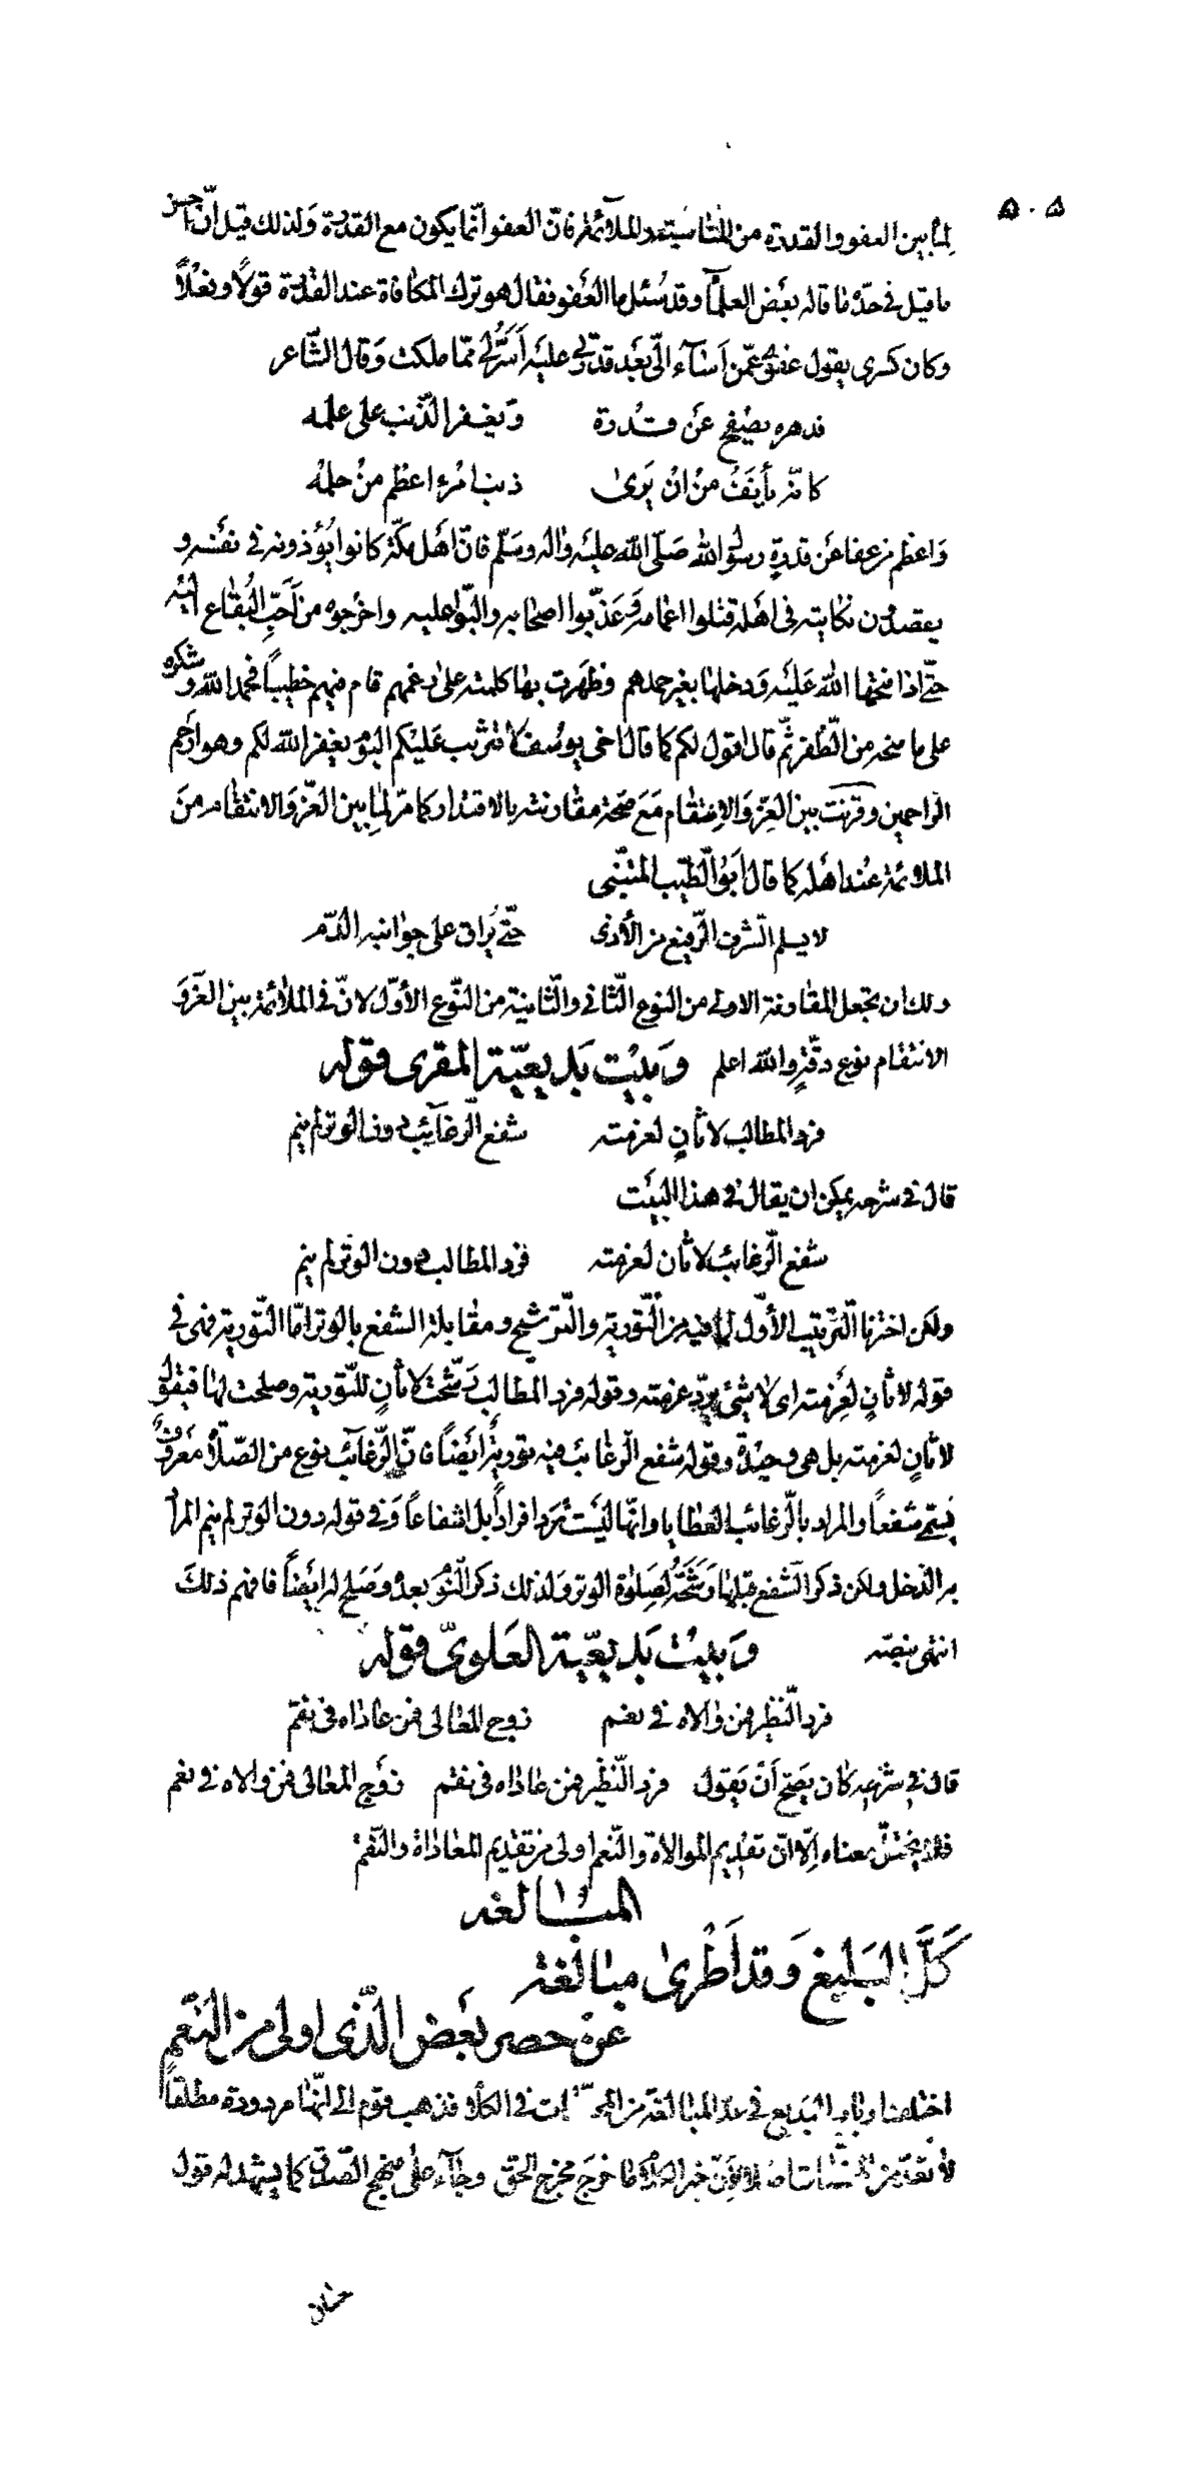 ٥٠٥
لما بين العفو والقدرة من المناسبة والملائمة فانّ العفو انّما يكون مع القدرة وَلذلك قيل انّ احسن
ما قيل في حدّه ما قاله بعض العلمآء وقد سُئل ما العَفو فقال هو ترك المكافاة عند القدرة قولاً وفعلاً
وكان كسرى يقول عفوى عمّن اَسٰآء الىّ بعَد قدرتى عليَه اَسَرُّ لى ممّا ملكت وَقال الشّاعر
فدهره يصْفح عَن قُدرة وَيغفر الذّنب على علمه
كانّه يأنَفُ منْ انْ يَرىٰ ذنب امْرءٍ اعظم منْ حلمهْ
وَاعظم من عفا عَن قدرةٍ رسول الله صَلّى الله عليَه وٰاله وسَلّم فانّ اهَل مكّة كانوا يُؤذونه فى نفَسه و
يقصدُون نكايته فى اهَله قتلوا اعمامه وَعَذّبوا اصحٰابه والّبوا عليه واخرَجوه من اَحَبّ البُقاع اليْه
حتّى اذا فتحهٰا اللهُ عَليَه وَدخلهٰا بغير حمدهم وظهَرت بهٰا كلمته علىٰ رغمهم قام فيهم خطيباً فحمد اللهَ وَ شكره
على ما منحه من الظّفر ثمّ قال اقول لكم كما قال اخى يوسُف لا تثريب عَليكم اليوْم يغفر الله لكم وهو ارحَم
الرّاحمين وقرنت بين العِزّ وَالانتقام مَعَ صحّة مقارنته بالاقتدار كما مرّ لمٰا بين العزّ وَالانتقام منَ
الملائمة عنْد اهَله كما قال اَبوُ الطّيب المتنبّى
لا يسلم الشّرف الرّفيع من الأذى حتّى يُراق على جوٰانبه الدّم
ولك ان تجعل المقارنة الاولى من النوع الثّانى والثّانية من النّوع الأوّل لانّ فى الملائمة بين العزّ وَ
الانتقام نوع دقّةٍ والله اعلم وَبيْت بَديعيّة المقرى قوله
فرد المطالب لا ثانٍ لعزمته شفع الرّغآئب دون الوتر لم ينم
قال فى شرحه يمكن ان يقال فى هذا البيَت
شفع الرّغائب لا ثان لعزمته فرد المطالب دون الوتر لم ينم
ولكن اخترنا التّرتيب الأوّل لما فيه من التّورية والتّرشيح ومقابلة الشفع بالوتر امّا التّورية فهى فى
قوله لا ثانٍ لعَزمته اى لا شئ يردّ عزمته وقوله فرد المطالب رَشّحت لا ثانٍ للتّورية وصلحت لها فيقول
لا ثانٍ لعزمته بل هى وحيْدة وقوله شفع الرّغائب فيه توريةٌ ايَضاً فانّ الرّغآئب نوع من الصّلاة معروف
فسمّ شفعاً والمراد بالرّغائب العطايا وانّها ليَست ترَد افراداً بل اشفاعاً وَفى قوله دون الوتر لم ينم المراد
به الذحل ولكن ذكر الشّفع قبلها رَشّحه لصَلٰوة الوتر وَلذلك ذكر النّوم بعدهُ وَصَلح له ايضَاً فافهم ذلكَ
انتهى بنصّه وَبيْت بَديعيّة العَلوىّ قوله
فرد النّظير فمن والاه فى نعم زوج المعالى فمن عاداه فى نقم
قال فى شرحه كان يصَحّ اَنْ يَقول فرد النّظير فمن عاداه فى نقم زوَج المعالى فمن والاه فى نعم
فلا يختلّ معناه الّا انّ تقديم الموالاة والنّعم اولى من تقديم المعاداة والنّقمة
المبالغه
كَلَّ البَليغ وَقد اَطْرىٰ مبٰالغة
عَنْ حصر بَعض الّذى اولى من النّعم
اختلف ارباب البَديع فى عدّ المبالغة من المحسّنات فى الكلام فذهب قوم الى انّها مردودة مطلقاً
لا تعدّ من المحسّنات اصلا فانّ خير الكلام ما خرَج مخرج الحقّ وجآء علىٰ منهج الصّدق كما يشهد له قول
حسّان